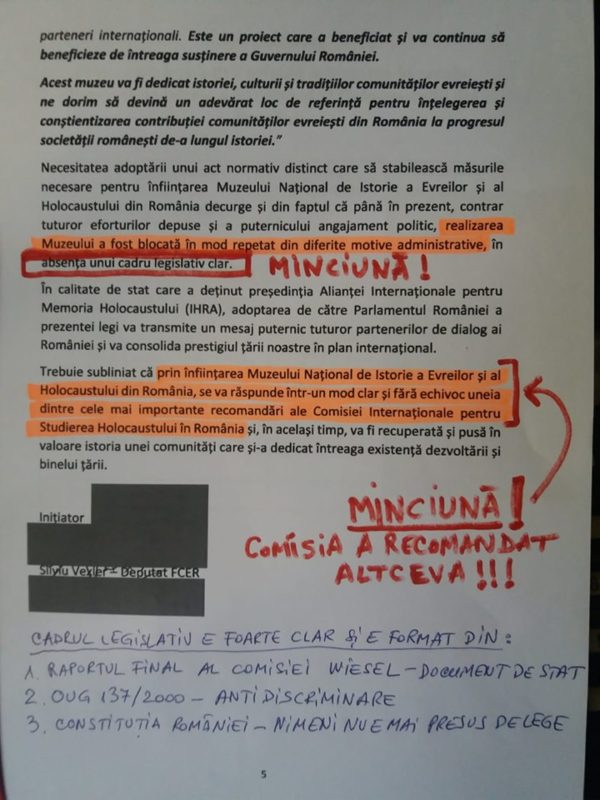 parteneri internaționali. Este un proiect care a beneficiat și va continua să
beneficieze de întreaga susținere a Guvernului României.
Acest muzeu va fi dedicat istoriei, culturii și tradițiilor comunităților evreiești și
ne dorim să devină un adevărat loc de referință pentru înțelegerea și
conștientizarea contribuției comunităților evreiești din România la progresul
societății românești de-a lungul istoriei.”
Necesitatea adoptării unui act normativ distinct care să stabilească măsurile
necesare pentru înființarea Muzeului Național de Istorie a Evreilor și al
Holocaustului din România decurge și din faptul că până în prezent, contrar
tuturor eforturilor depuse și a puternicului angajament politic, realizarea
Muzeului a fost blocată în mod repetat din diferite motive administrative, în
absența unui cadru legislativ clar. MINCIUNĂ!
În calitate de stat care a deținut președinția Alianței Internaționale pentru
Memoria Holocaustului (IHRA), adoptarea de către Parlamentul României a
prezentei legi va transmite un mesaj puternic tuturor partenerilor de dialog ai
României și va consolida prestigiul țării noastre în plan internațional.
Trebuie subliniat că prin înființarea Muzeului Național de Istorie a Evreilor și al
Holocaustului din România, se va răspunde într-un mod clar și fără echivoc uneia
dintre cele mai importante recomandări ale Comisiei Internaționale pentru
Studierea Holocaustului în România și, în același timp, va fi recuperată și pusă în
valoare istoria unei comunități care și-a dedicat întreaga existență dezvoltării și
binelui țării.
MINCIUNĂ!
COMISIA A RECOMANDAT
ALTCEVA!!!
Inițiator
Silviu Vexler – Deputat FCER
CADRUL LEGISLATIV E FOARTE CLAR ȘI E FORMAT DIN:
1. RAPORTUL FINAL AL COMISIEI WIESEL – DOCUMENT DE STAT
2. OUG 137/2000 – ANTIDISCRIMINARE
3. CONSTITUȚIA ROMÂNIEI – NIMENI NU E MAI PRESUS DE LEGE
5